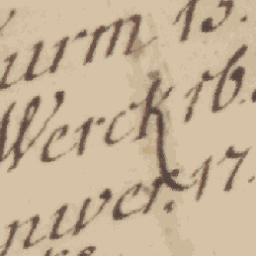 urm 15.
Werck 16.
nwer. 17.